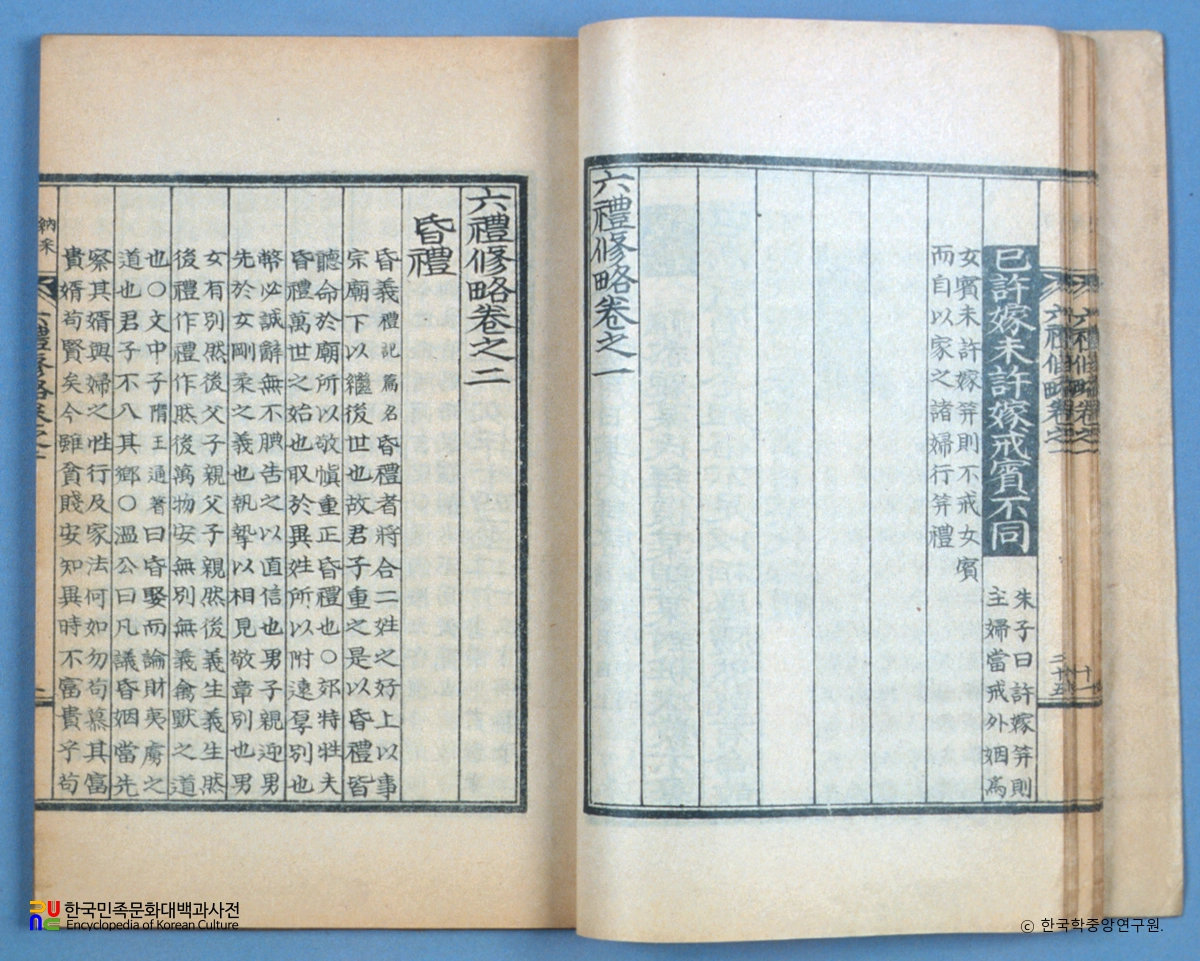 六禮修略卷之一
二十五
已許嫁未許嫁戒賓不同
朱子曰許嫁笄則
主婦當戒外姻爲
女賓未許嫁笄則不戒女賓
而自以家之諸婦行笄禮
六禮修略卷之一
六禮修略卷之二
昏禮
昏義禮記篇名昏禮者將合二姓之好上以事
宗廟下以繼後世也故君子重之是以昏禮皆
聽命於廟所以敬愼重正昏禮也○郊特牲夫
昏禮萬世之始也取於異姓所以附遠厚別也
幣必誠辭無不腆告之以直信也男子親迎男
先於女剛柔之義也執摯以相見敬章別也男
女有別然後父子親父子親然後義生義生然
後禮作禮作然後萬物安無別無義禽獸之道
也○文中子隋王通著曰昏娶而論財夷虜之
道也君子不入其鄕○溫公曰凡議昏姻當先
察其婿與婦之性行及家法何如勿苟慕其富
貴婿苟賢矣今雖貧賤安知異時不富貴乎苟
納采
한국민족문화대백과사전
Encyclopedia of Korean Culture
ⓒ 한국학중앙연구원.